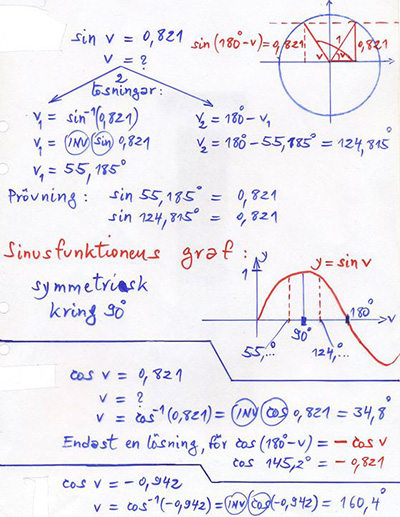 sin v = 0,821
v = ?
2
lösningar:
sin(180°-v)=0,821
1
0,821
v
v
v₁ = sin⁻¹(0,821)
v₁ = INV sin 0,821
v₁ = 55,185°
v₂ = 180° - v₁
v₂ = 180° - 55,885° = 124,815°
Prövning: sin 55,185° = 0,821
sin 124,815° = 0,821
Sinusfunktionens graf:
symmetrisk
kring 90°
y
y = sin v
1
180°
v
90°
55,... 124,...
cos v = 0,821
v = ?
v = cos⁻¹(0,821) = INV COS 0,821 = 34,8°
Endast en lösning, för cos(180°-v) = - cos v
cos 145,2° = - 0,821
cos v = - 0,942
v = cos⁻¹(-0,942) = INV cos (-0,942) = 160,4°